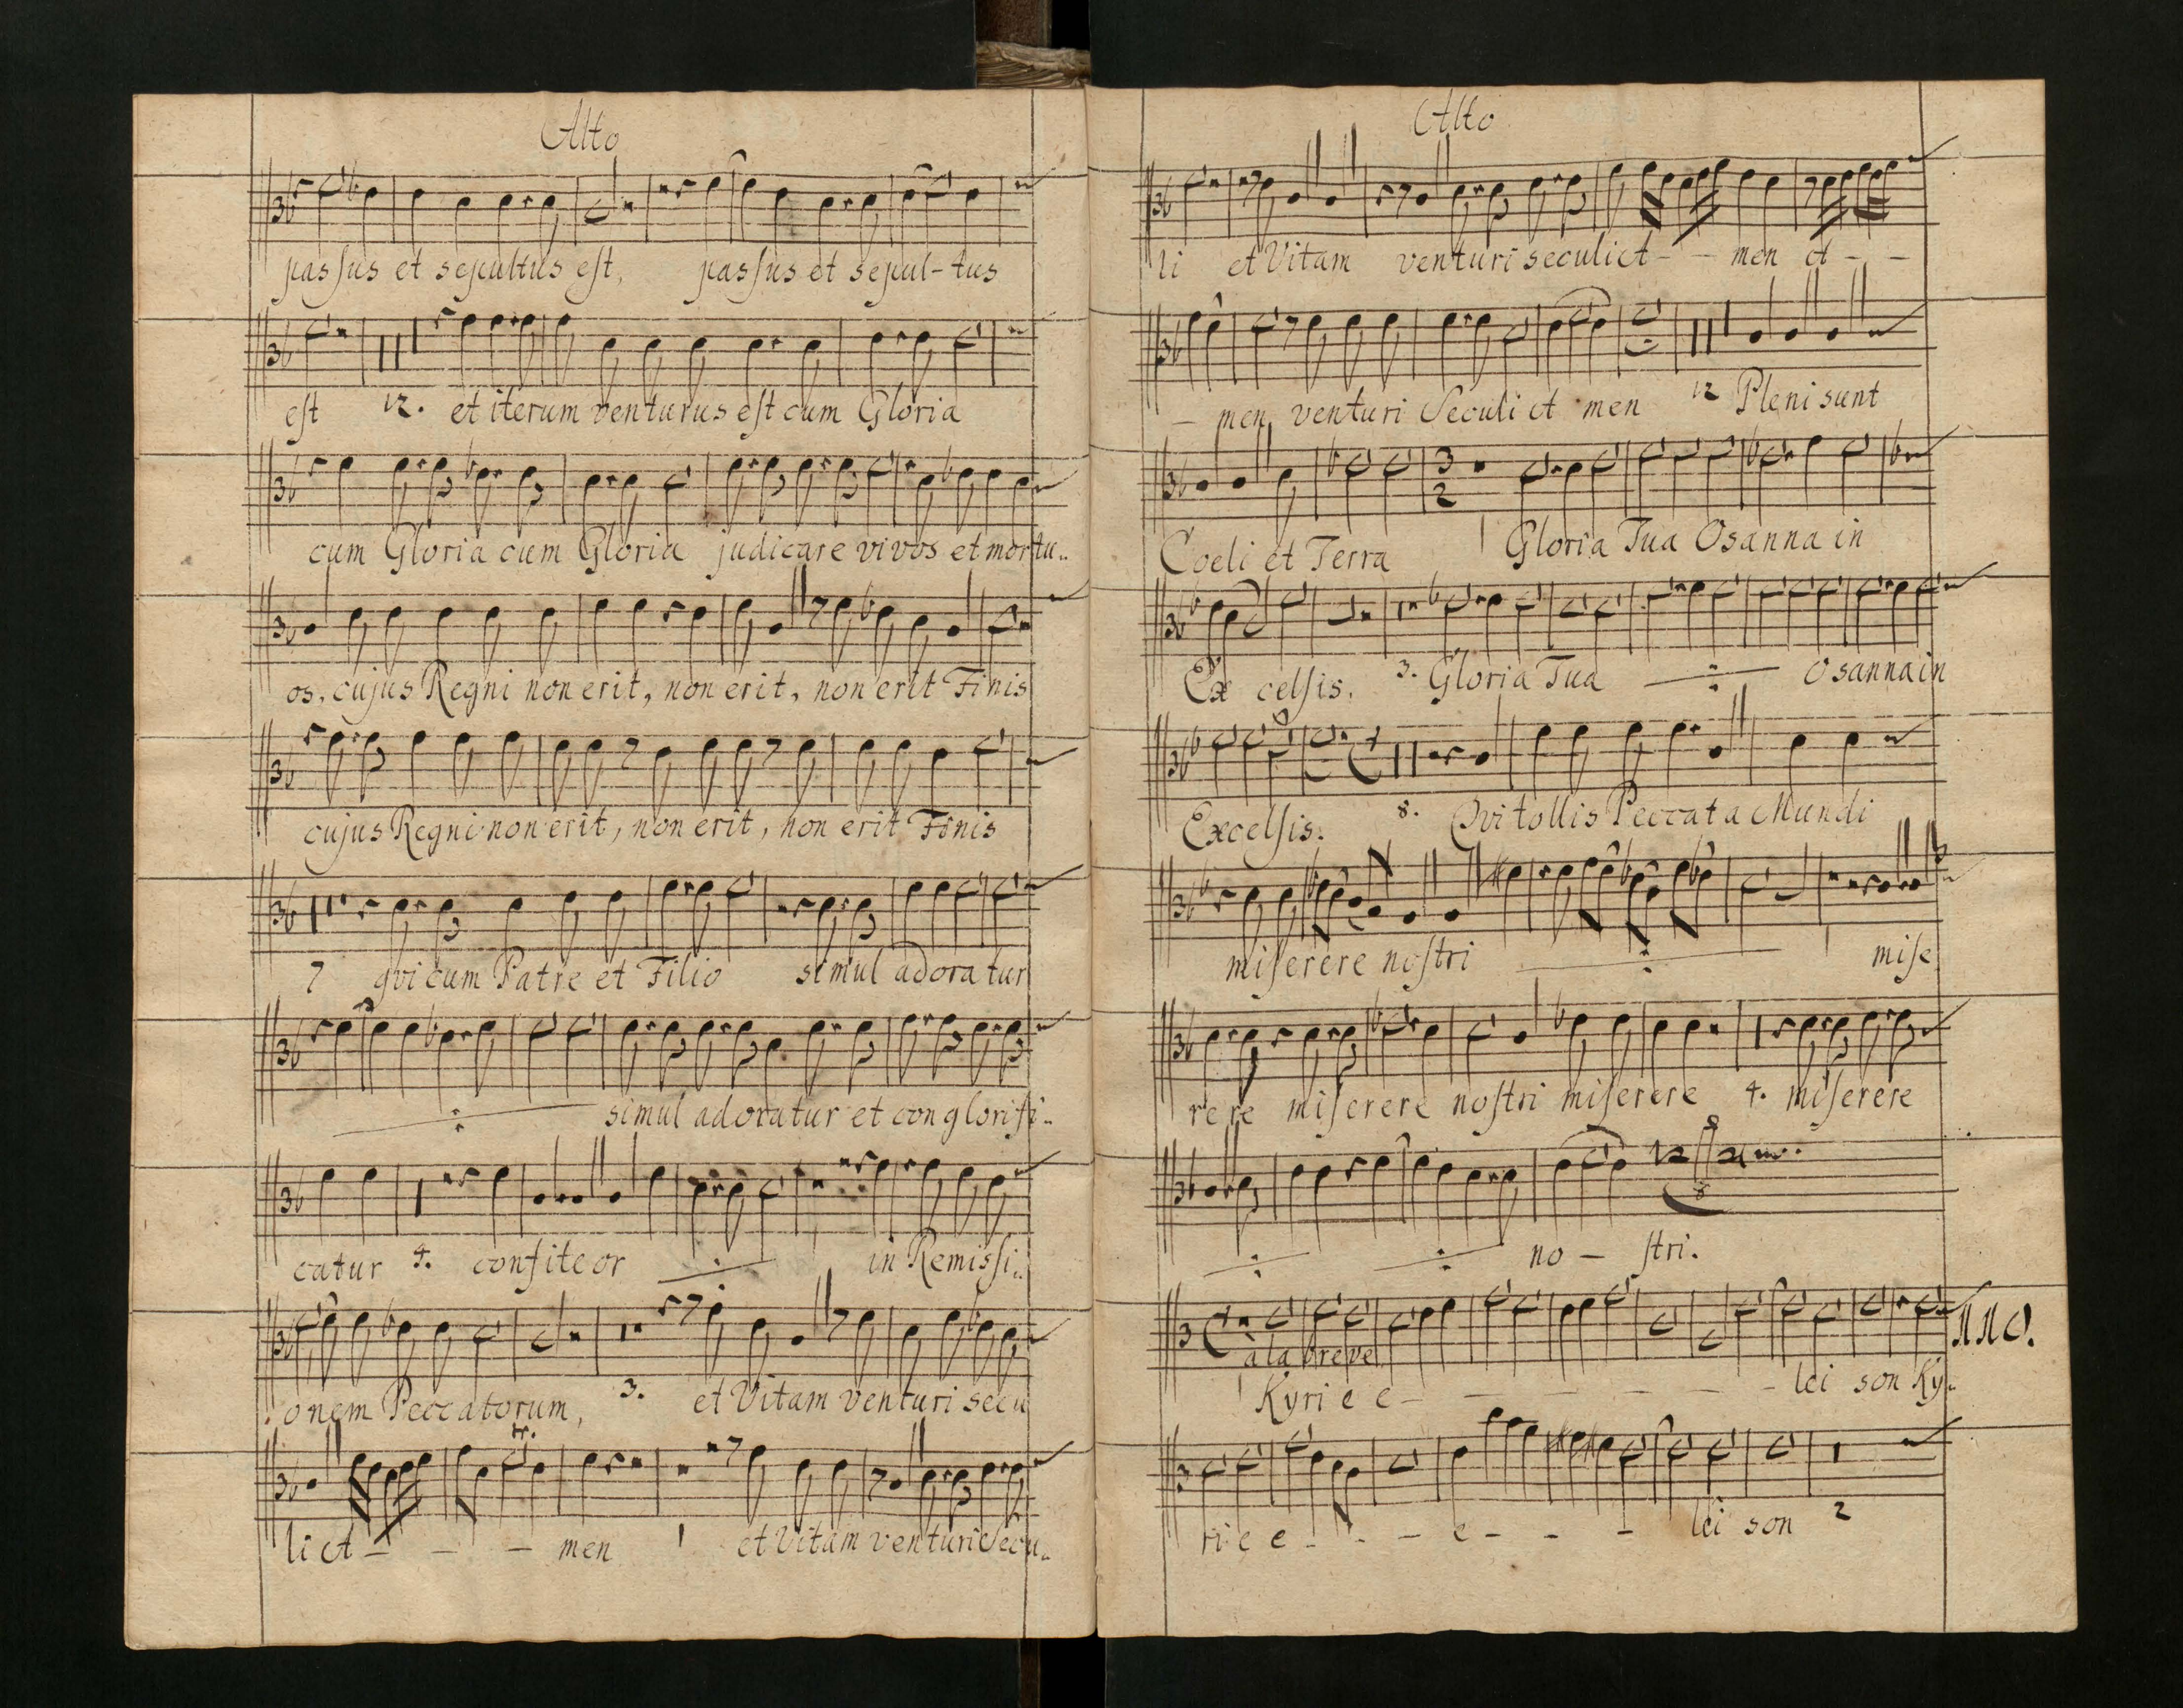 Alto
passus et sepultus est, passus et sepul-tus
est 12. et iterum venturus est cum Gloria
cum Gloria cum Gloria judicare vivos et mortu..
os, cujus Regni non erit, non erit, non erit Finis
cujus Regni non erit, non erit, non erit Finis
7 qvi cum Patre et Filio simul adoratur
simul adoratur et con glorifi..
catur 4. confiteor in Remissi..
onem Peccatorum, 3. et Vitam venturi secu
li A - - - men 1 et Vitam venturi Secu..
Alto
li et Vitam venturi seculi A - - men A - -
- men, venturi Seculi A men 12 Pleni sunt
3
2
Coeli et Terra 1 Gloria Tua Osanna in
Ex celsis. 3. Gloria Tua Osanna in
Excelsis. 8. Qvi tollis Peccata Mundi
miserere nostri 1 mise
rere miserere nostri miserere 4. miserere
no - stri.
à la breve
Kyri e e - - - - - - - lei son Ky..
ri e e - - - e - - - lei son 2